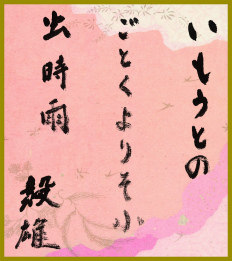 いもうとの
ごとくよりそふ
出時雨
毅雄